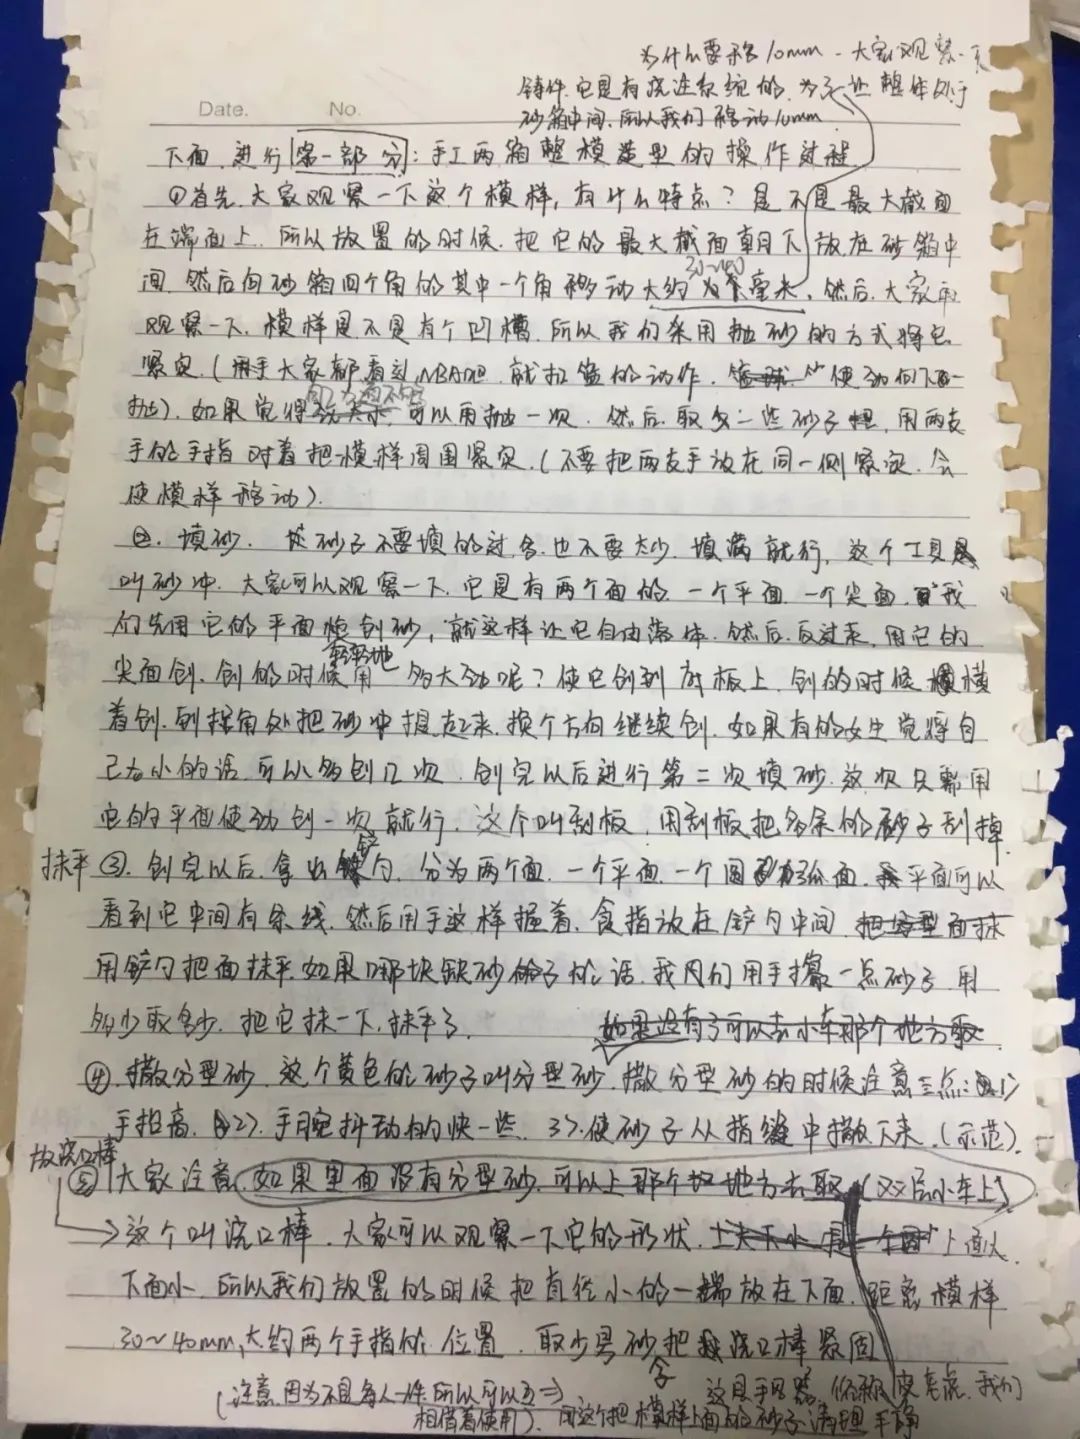 为什么要移10mm-大家观察一下
铸件.它是有浇注系统的.为了让整体处于
砂箱中间.所以我们移动10mm
Date. No.
下面.进行第一部分:手工两箱整模造型的操作过程
①首先.大家观察一下这个模样,有什么特点?是不是最大截面
在端面上.所以放置的时候.把它的最大截面朝下放在砂箱中
间.然后向砂箱四个角的其中一个角移动大约为毫米.然后.大家再
30~40
观察一下.模样是不是有个凹槽.所以我们采用抛砂的方式将它
紧实.(用手大家都看过NBA吧.就扣篮的动作.使劲向下一
抛).如果觉得可以再抛一次.然后.取多一些砂子.用两支
手的手指对着把模样周围紧实.(不要把两支手放在同一侧紧实.会
使模样移动).
②.填砂.砂子不要填的过多.也不要太少.填满就行.这个工具
叫砂冲.大家可以观察一下.它是有两个面的.一个平面.一个尖面.我
们先用它的平面刨砂,就这样让它自由落体.然后.反过来.用它的
轻轻地
尖面刨.刨的时候用多大劲呢?使它刨到底板上.刨的时候横
着刨.到拐角处把砂冲提起来.换个方向继续刨.如果有的女生觉得自
己力小的话.可以多刨几次.刨完以后进行第二次填砂.这次只需用
它的平面使劲刨一次就行.这个叫刮板.用刮板把多余的砂子刮掉
抹平③.刨完以后.拿出铲勺.分为两个面.一个平面.一个圆弧面.平面可以
看到它中间有条线.然后用手这样握着.食指放在铲勺中间.把分型面抹
用铲勺把面抹平.如果哪块缺砂子的话.我们用手撮一点砂子.用
多少取多少.把它抹一下.抹平了.如果没有了可以去小车那个地方取
④.撒分型砂.这个黄色的砂子叫分型砂.撒分型砂的时候注意三点:1>
手抬高.2>.手腕抖动的快一些.3>.使砂子从指缝中撒下来.(示范).
放浇口棒
⑤大家注意.如果里面没有分型砂.可以上那个地方去取(双层小车上)
→这个叫浇口棒.大家可以观察一下它的形状.上面大
下面小.所以我们放置的时候把直径小的一端放在下面.距离模样
30~40mm,大约两个手指的位置.取少量砂把浇口棒紧固
(注意.因为不是每人一件.所以可以互相借着使用).这是手风器.俗称皮老虎.我们
用这个把模样上面的砂子清理干净